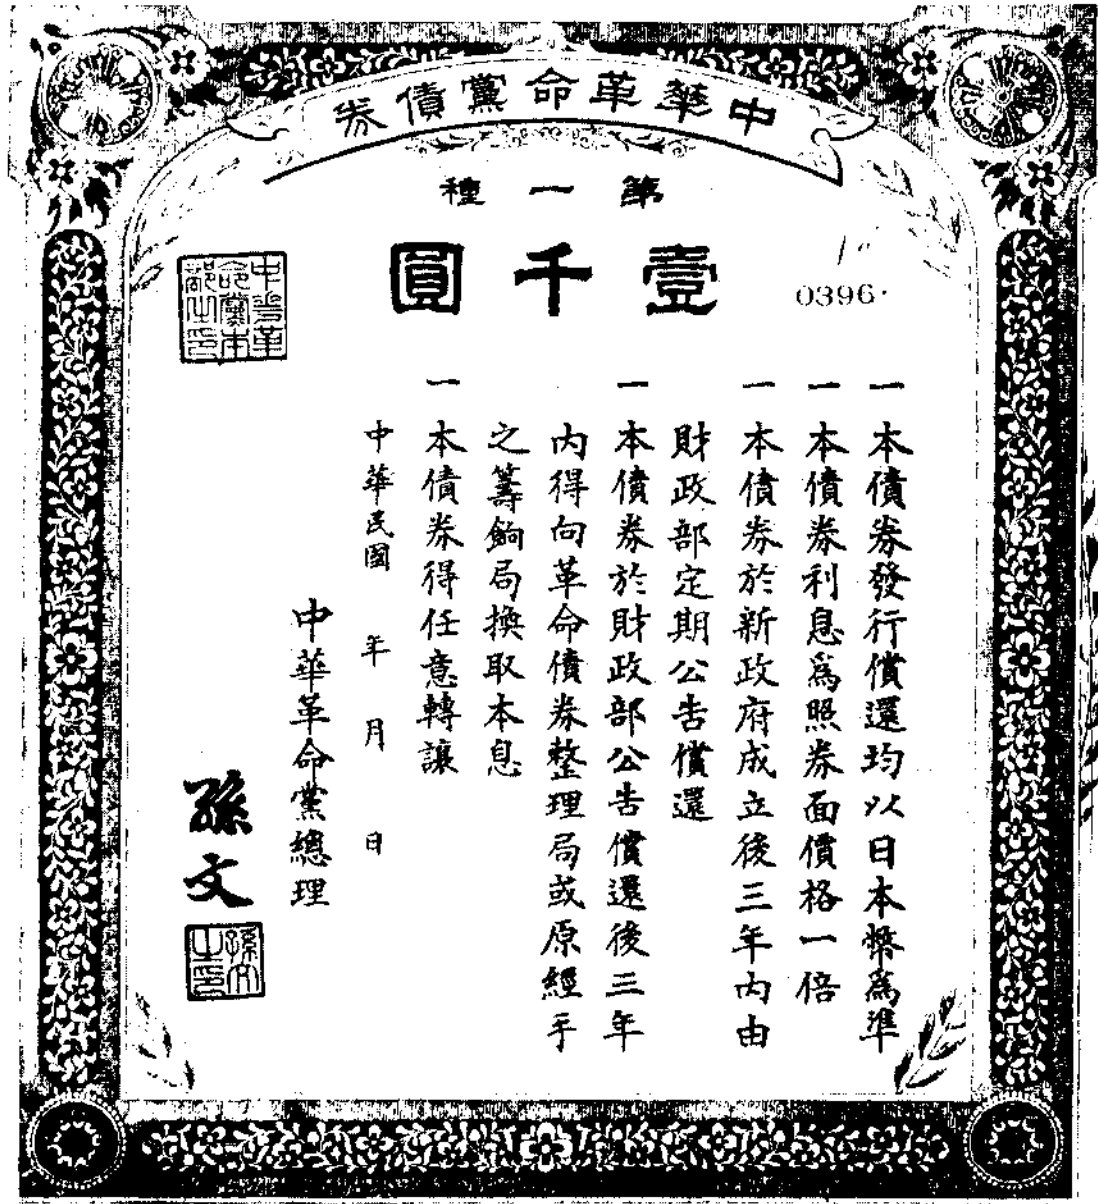 中華革命黨債券
第一種
壹千圓
0396
中華革命黨本部之印
一 本債券發行償還均以日本幣為準
一 本債券利息為照券面價格一倍
一 本債券於新政府成立後三年內由
財政部定期公告償還
一 本債券於財政部公告償還後三年
內得向革命債券整理局或原經手
之籌餉局換取本息
一 本債券得任意轉讓
中華民國 年 月 日
中華革命黨總理
孫文
孫文之印